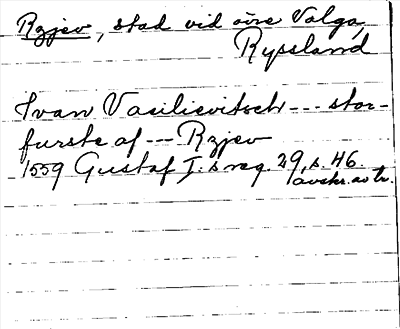 Rzjev, stad vid övre Volga,
Ryssland
Ivan Vasilievitsch --- stor-
furste af --- Rzjev
1559 Gustaf I:s reg. 29, s. 46
avskr. av tr.